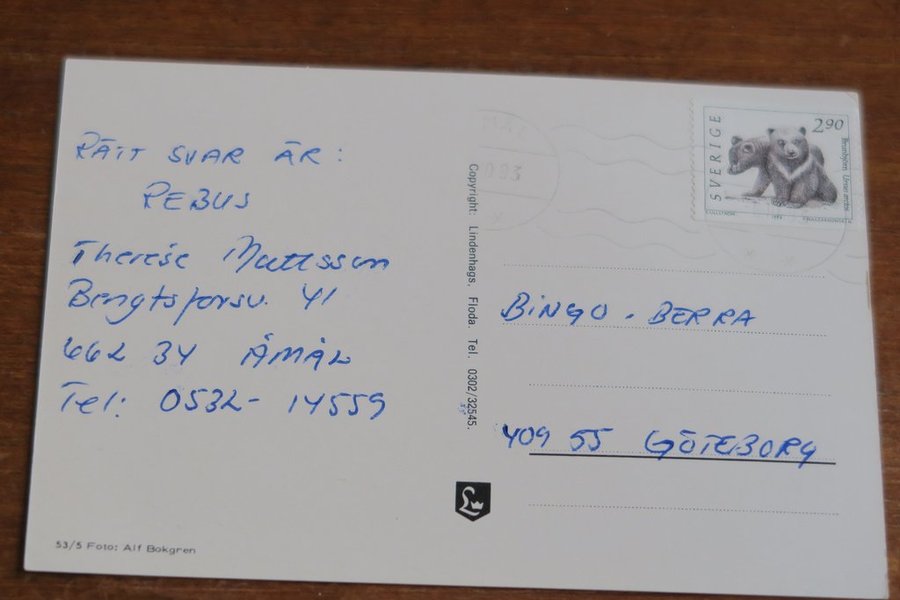 RÄTT SVAR ÄR:
REBUS
Therése Mattsson
Bengtsforsv. 41
662 34 ÅMÅL
Tel: 0532-14559
53/5 Foto: Alf Bokgren
Copyright: Lindenhags, Floda. Tel. 0302/32545.
SVERIGE
290
Brunbjörn Ursus arctos
BINGO-BERRA
409 55 GÖTEBORG